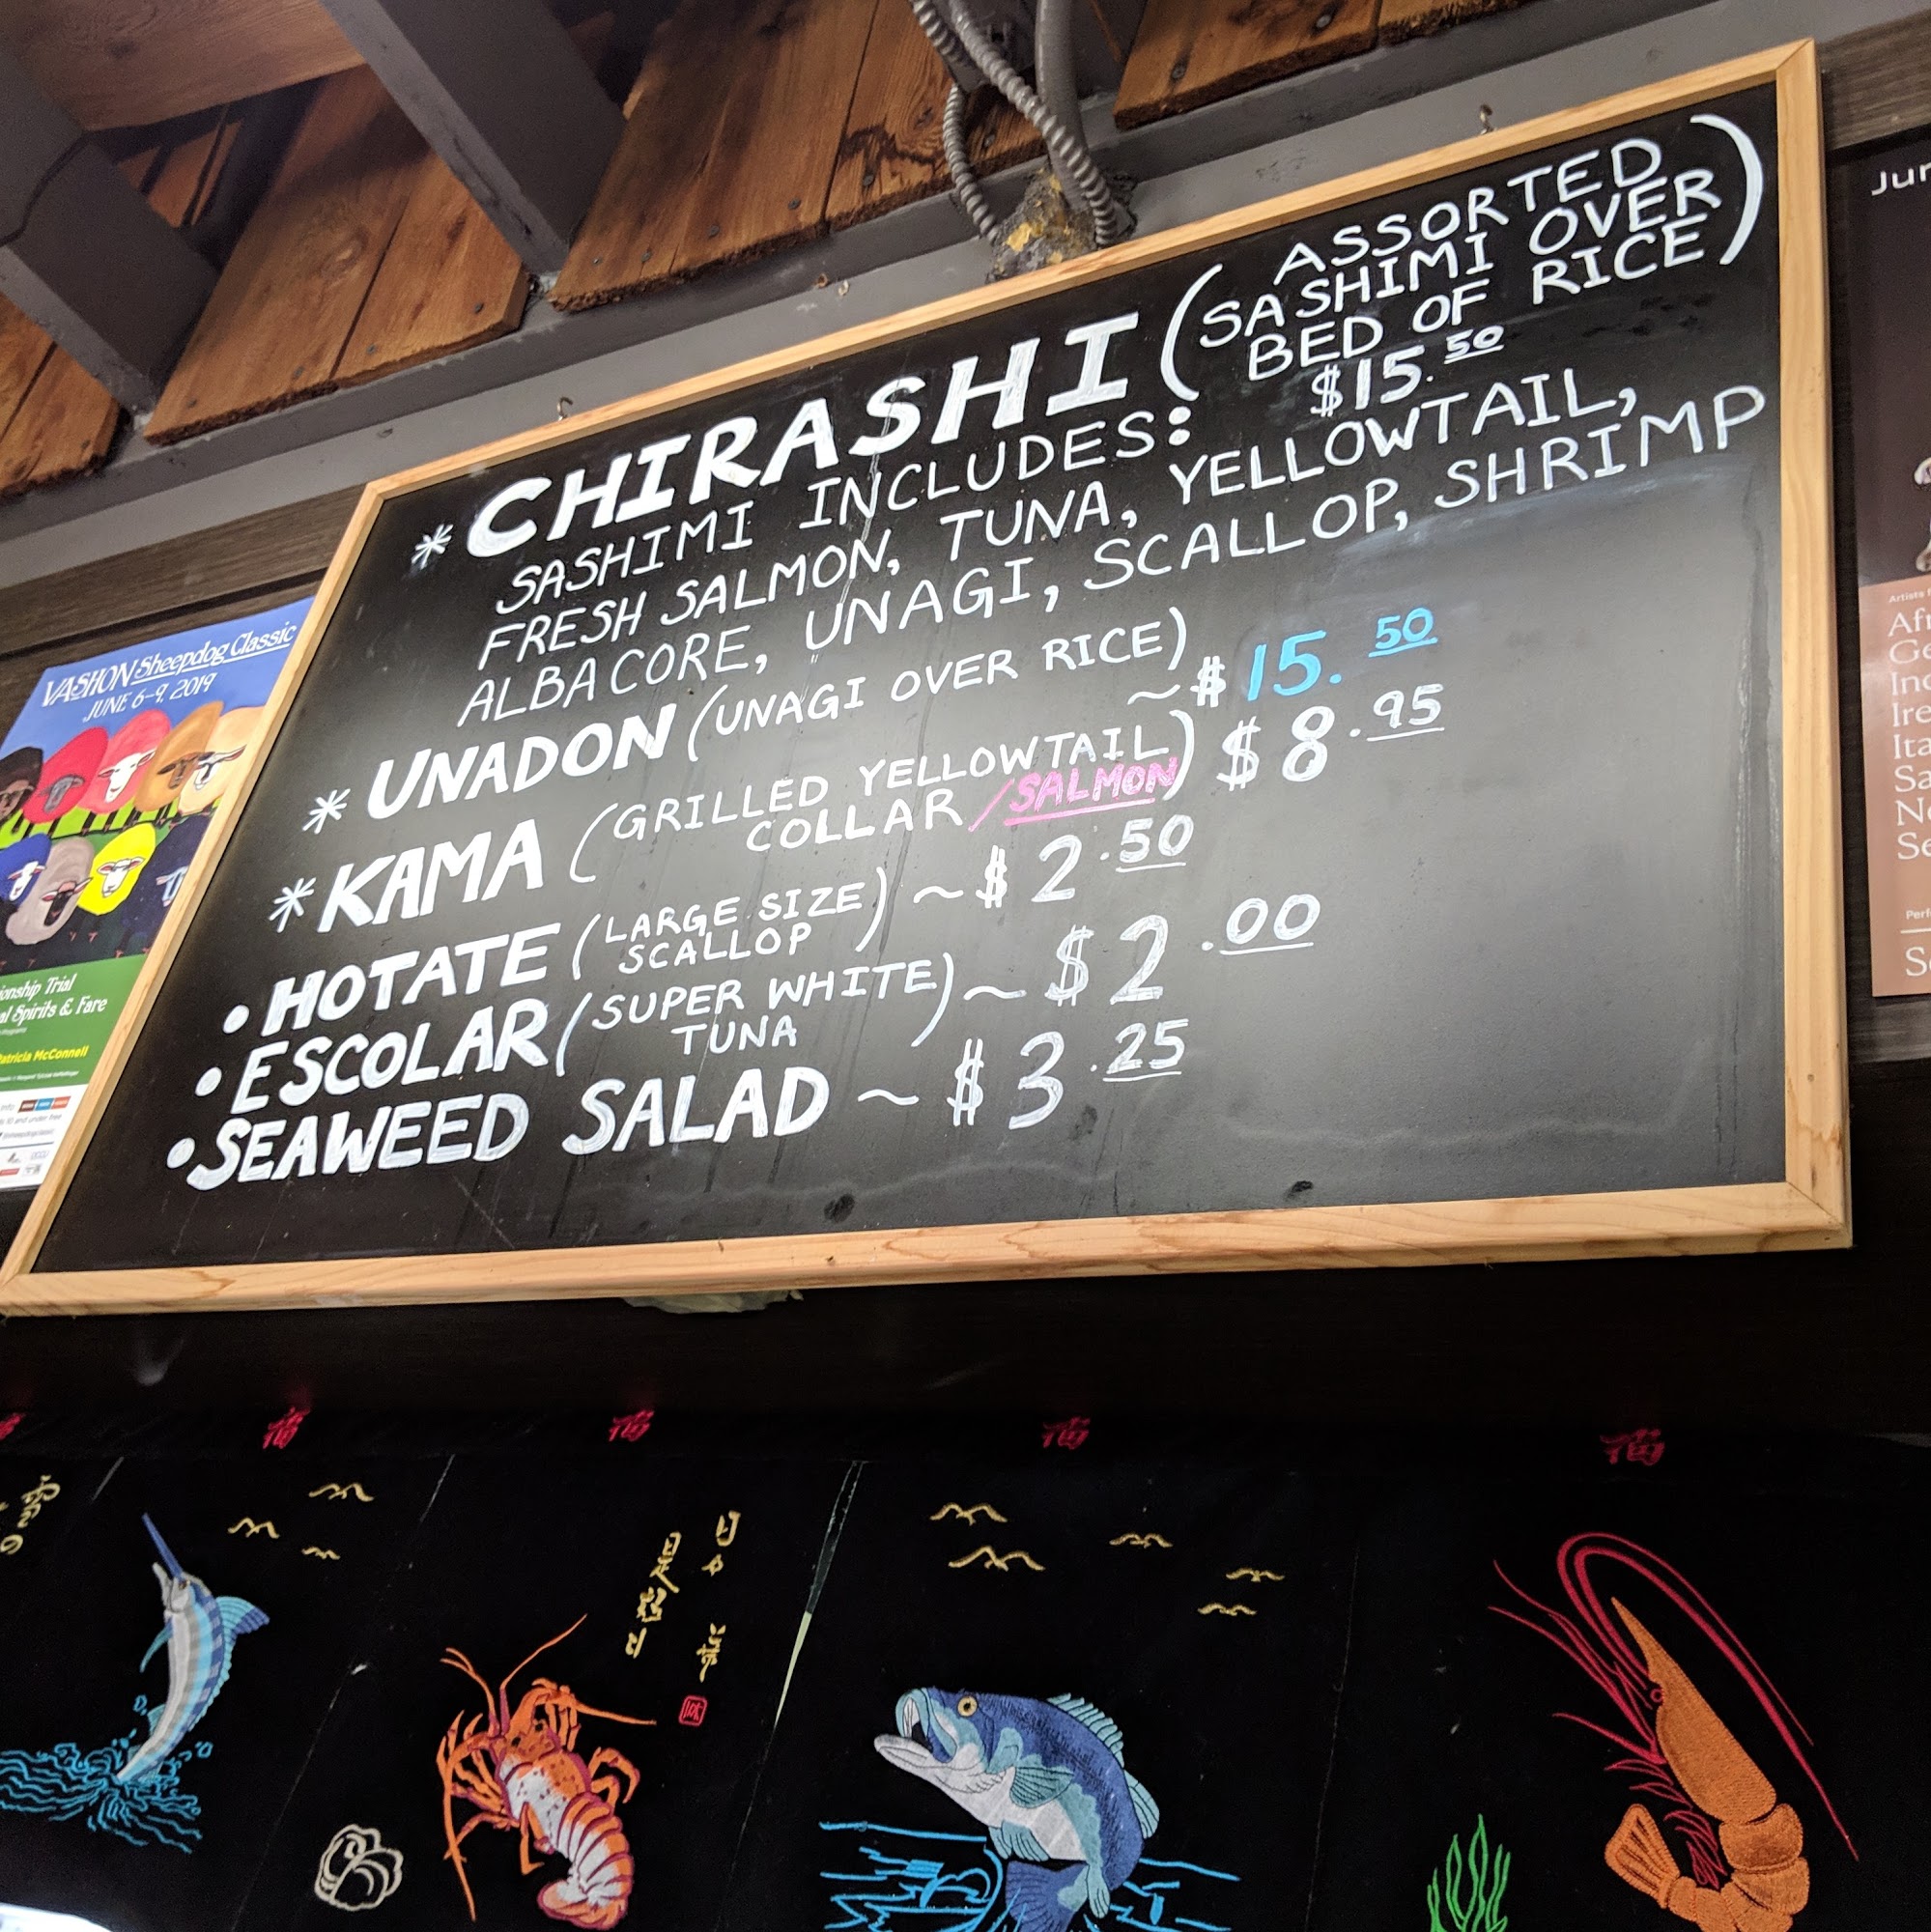 * CHIRASHI (ASSORTED
SASHIMI OVER
BED OF RICE)
$15.50
SASHIMI INCLUDES:
FRESH SALMON, TUNA, YELLOWTAIL,
ALBACORE, UNAGI, SCALLOP, SHRIMP
* UNADON (UNAGI OVER RICE)
~$15.50
* KAMA (GRILLED YELLOWTAIL
COLLAR/SALMON) $8.95
• HOTATE (LARGE SIZE
SCALLOP) ~ $2.50
• ESCOLAR (SUPER WHITE
TUNA) ~ $2.00
• SEAWEED SALAD ~ $3.25
VASHON Sheepdog Classic
JUNE 6-9, 2019
ionship Trial
al Spirits & Fare
Patricia McConnell
Jun
Artists f
Afr
Ge
Ind
Ire
Ita
Sa
No
Se
Perf
So
福
福
福
福